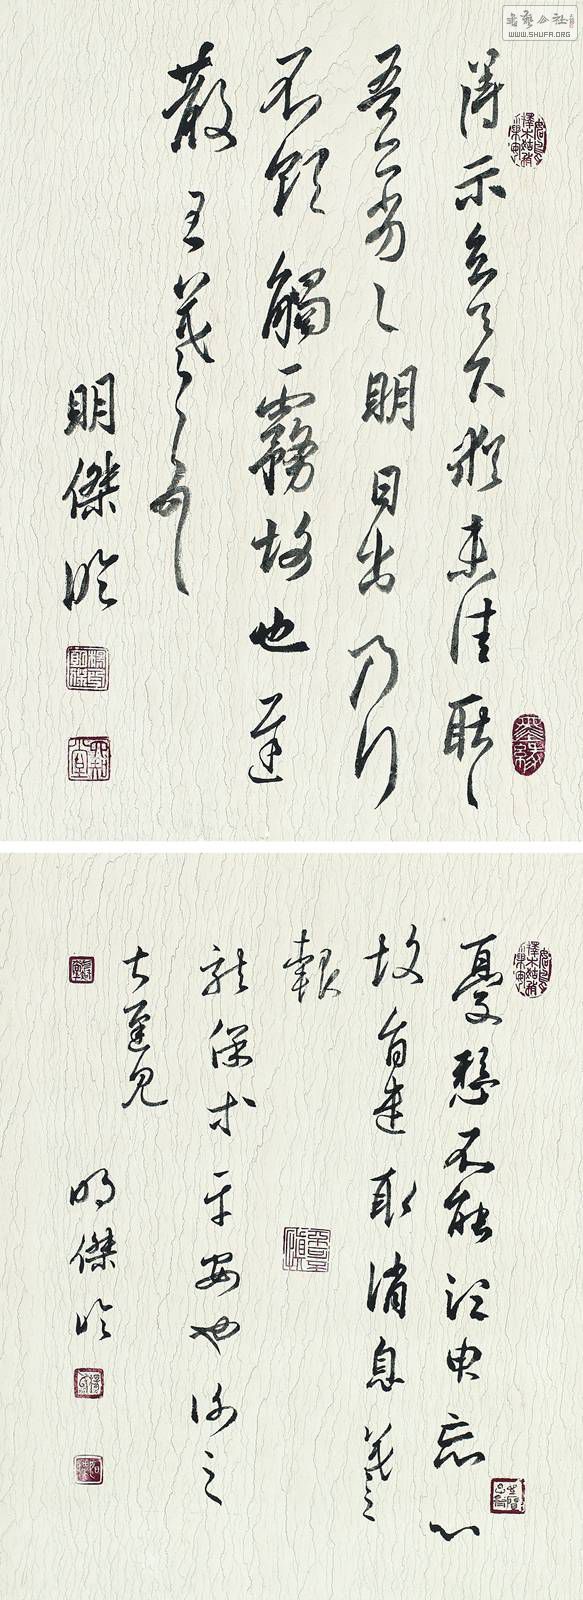 WWW.SHUFA.ORG
得示知足下猶未佳耿〻
吾亦劣〻明日出乃行
不欲觸霧故也遲
散王羲之頓首
明傑臨
憂懸不能須臾忘心
故旨遣取消息羲之
報
龍保等平安也謝之
甚遲見
明傑臨